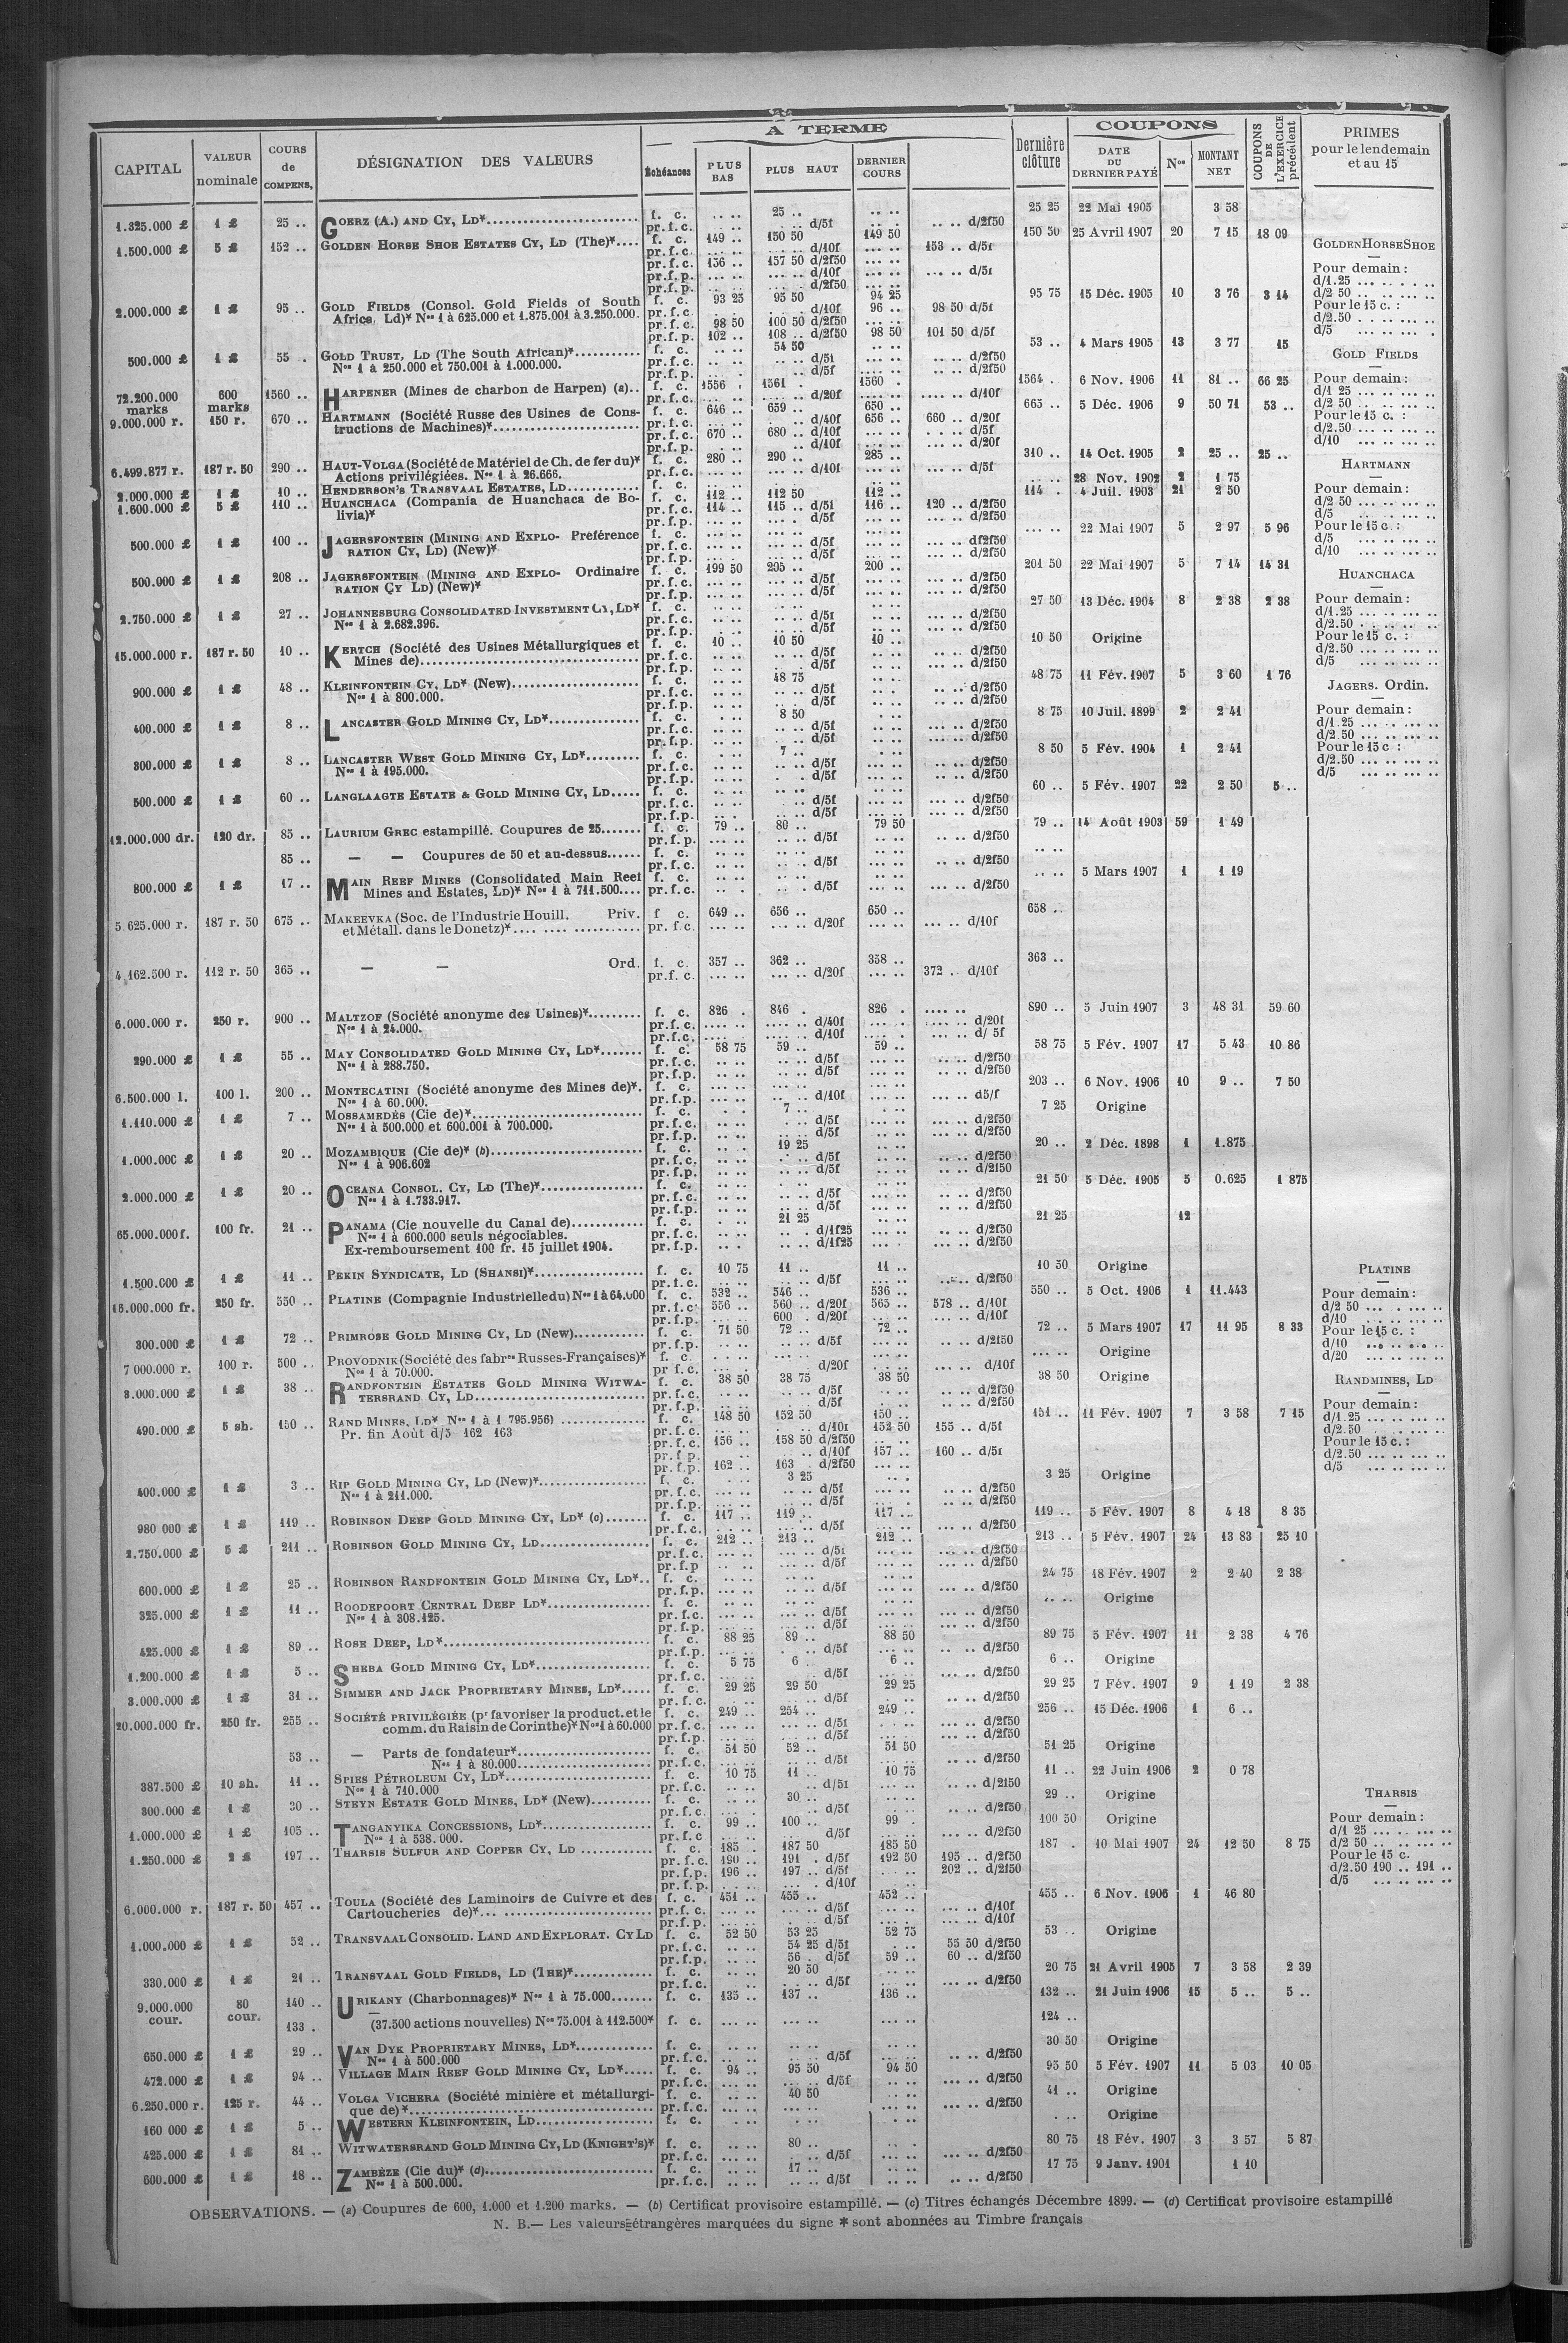 CAPITAL | VALEUR nominale | COURS de COMPENS. | DÉSIGNATION DES VALEURS | A TERME | Dernière clôture | COUPONS | COUPONS DE L'EXERCICE précédent | PRIMES pour le lendemain et au 15
Échéances | PLUS BAS | PLUS HAUT | DERNIER COURS | DATE DU DERNIER PAYÉ | Nos | MONTANT NET
1.325.000 £ | 1 £ | 25 .. | GOERZ (A.) AND CY, LD* | f. c. | .. .. | 25 .. | .. .. | 25 25 | 22 Mai 1905 | 3 58
pr.f.c. | d/5f | .. .. d/2f50
1.500.000 £ | 5 £ | 152 .. | GOLDEN HORSE SHOE ESTATES CY, LD (The)* | f. c. | 149 .. | 150 50 | 149 50 | 150 50 | 25 Avril 1907 | 20 | 7 15 | 18 09
pr.f.c. | d/10f | 153 .. d/5f
pr.f.c. | 156 .. | 157 50 d/2f50
pr.f.p. | d/10f | d/5f
pr.f.p. | d/2f50
2.000.000 £ | 1 £ | 95 .. | GOLD FIELDS (Consol. Gold Fields of South | f. c. | 93 25 | 95 50 | 94 25 | 95 75 | 15 Déc. 1905 | 10 | 3 76 | 3 14
Africa, Ld)* Nos 1 à 625.000 et 1.875.001 à 3.250.000. | pr.f.c. | d/10f | 96 .. | 98 50 d/5f
pr.f.c. | 98 50 | 100 50 d/2f50
pr.f.p. | 102 .. | 108 .. d/2f50 | 98 50 | 101 50 d/5f
500.000 £ | 1 £ | 55 . | GOLD TRUST, LD (The South African)* | f. c. | 54 50 | 53 .. | 4 Mars 1905 | 13 | 3 77 | 15
Nos 1 à 250.000 et 750.001 à 1.000.000. | pr.f.c. | d/5f | d/2f50
pr.f.p. | d/5f | d/2f50
72.200.000 marks | 600 marks | 1560 .. | HARPENER (Mines de charbon de Harpen) (a).. | f. c. | 1556 . | 1561 . | 1560 . | 1564 . | 6 Nov. 1906 | 11 | 81 .. | 66 25
pr.f.c. | d/20f | d/10f
9.000.000 r. | 150 r. | 670 .. | HARTMANN (Société Russe des Usines de Cons- | f. c. | 646 .. | 659 .. | 650 .. | 665 .. | 5 Déc. 1906 | 9 | 50 71 | 53 ..
tructions de Machines)* | pr.f.c. | d/40f | 656 .. | 660 .. d/20f
pr.f.c. | 670 .. | 680 .. d/10f | d/5f
pr.f.p. | d/10f | d/20f
6.499.877 r. | 187 r. 50 | 290 .. | HAUT-VOLGA (Société de Matériel de Ch. de fer du)* | f. c. | 280 .. | 290 .. | 285 .. | 310 .. | 14 Oct. 1905 | 2 | 25 .. | 25 ..
Actions privilégiées. Nos 1 à 26.666. | pr.f.c. | d/10f | d/5f
2.000.000 £ | 1 £ | 10 .. | HENDERSON'S TRANSVAAL ESTATES, LD | f. c. | 28 Nov. 1902 | 2 | 1 75
1.600.000 £ | 5 £ | 110 .. | HUANCHACA (Compania de Huanchaca de Bo- | f. c. | 112 .. | 112 50 | 112 .. | 114 . | 4 Juil. 1903 | 21 | 2 50
livia)* | pr.f.c. | 114 .. | 115 .. d/5f | 116 .. | 120 .. d/2f50
pr.f.p. | d/5f | d/2f50
500.000 £ | 1 £ | 100 .. | JAGERSFONTEIN (MINING AND EXPLO- Préférence | f. c. | 22 Mai 1907 | 5 | 2 97 | 5 96
RATION CY, LD) (New)* | pr.f.c. | d/5f | df2f50
pr.f.p. | d/5f | d/2f50
500.000 £ | 1 £ | 208 .. | JAGERSFONTEIN (MINING AND EXPLO- Ordinaire | f. c. | 199 50 | 205 .. | 200 .. | 201 50 | 22 Mai 1907 | 5 | 7 14 | 14 31
RATION CY LD) (New)* | pr.f.c. | d/5f | d/2f50
pr.f.p. | d/5f | d/2f50
2.750.000 £ | 1 £ | 27 .. | JOHANNESBURG CONSOLIDATED INVESTMENT CY, LD* | f. c. | 27 50 | 13 Déc. 1904 | 8 | 2 38 | 2 38
Nos 1 à 2.682.396. | pr.f.c. | d/5f | d/2f50
pr.f.p. | d/5f | d/2f50
15.000.000 r. | 187 r. 50 | 10 .. | KERTCH (Société des Usines Métallurgiques et | f. c. | 10 .. | 10 50 | 10 .. | 10 50 | Origine
Mines de) | pr.f.c. | d/5f | d/2f50
pr.f.p. | d/5f | d/2f50
900.000 £ | 1 £ | 48 .. | KLEINFONTEIN CY, LD* (New) | f. c. | 48 75 | 48 75 | 11 Fév. 1907 | 5 | 3 60 | 1 76
Nos 1 à 800.000. | pr.f.c. | d/5f | d/2f50
pr.f.p. | d/5f | d/2f50
400.000 £ | 1 £ | 8 .. | LANCASTER GOLD MINING CY, LD* | f. c. | 8 50 | 8 75 | 10 Juil. 1899 | 2 | 2 41
pr.f.c. | d/5f | d/2f50
pr.f.p. | d/5f | d/2f50
300.000 £ | 1 £ | 8 .. | LANCASTER WEST GOLD MINING CY, LD* | f. c. | 7 .. | 8 50 | 5 Fév. 1904 | 1 | 2 41
Nos 1 à 195.000. | pr.f.c. | d/5f | d/2f50
pr.f.p. | d/5f | d/2f50
500.000 £ | 1 £ | 60 .. | LANGLAAGTE ESTATE & GOLD MINING CY, LD | f. c. | 60 .. | 5 Fév. 1907 | 22 | 2 50 | 5 ..
pr.f.c. | d/5f | d/2f50
pr.f.p. | d/5f | d/2f50
12.000.000 dr. | 120 dr. | 85 .. | LAURIUM GREC estampillé. Coupures de 25 | f. c. | 79 .. | 80 .. | 79 50 | 79 .. | 14 Août 1903 | 59 | 1 49
pr.f.p. | d/5f | d/2f50
85 .. | — — Coupures de 50 et au-dessus | f. c.
pr.f.c. | d/5f | d/2f50
800.000 £ | 1 £ | 17 .. | MAIN REEF MINES (Consolidated Main Reef | f. c. | 5 Mars 1907 | 1 | 1 19
Mines and Estates, LD)* Nos 1 à 711.500 | pr.f.c. | d/5f | d/2f50
5 625.000 r. | 187 r. 50 | 675 .. | MAKEEVKA (Soc. de l'Industrie Houill. Priv. | f c. | 649 .. | 656 .. | 650 .. | 658 ..
et Métall. dans le Donetz)* | pr. f.c. | d/20f | d/10f
4.162.500 r. | 112 r. 50 | 365 .. | — — Ord. | f. c. | 357 .. | 362 .. | 358 .. | 363 ..
pr.f. c. | d/20f | 372 .. d/10f
6.000.000 r. | 250 r. | 900 .. | MALTZOF (Société anonyme des Usines)* | f. c. | 826 . | 846 . | 826 . | 890 .. | 5 Juin 1907 | 3 | 48 31 | 59 60
Nos 1 à 24.000. | pr.f.c. | d/40f | d/20f
pr.f.c. | d/10f | d/ 5f
290.000 £ | 1 £ | 55 .. | MAY CONSOLIDATED GOLD MINING CY, LD* | f. c. | 58 75 | 59 .. | 59 .. | 58 75 | 5 Fév. 1907 | 17 | 5 43 | 10 86
Nos 1 à 288.750. | pr.f.c. | d/5f | d/2f50
pr.f.p. | d/5f | d/2f50
6.500.000 l. | 100 l. | 200 .. | MONTECATINI (Société anonyme des Mines de)*. | f. c. | 203 .. | 6 Nov. 1906 | 10 | 9 .. | 7 50
Nos 1 à 60.000. | pr.f.p. | d/10f | d5/f
1.110.000 £ | 1 £ | 7 .. | MOSSAMEDÈS (Cie de)* | f. c. | 7 .. | 7 25 | Origine
Nos 1 à 500.000 et 600.001 à 700.000. | pr.f.c. | d/5f | d/2f50
pr.f.p. | d/5f | d/2f50
1.000.000 £ | 1 £ | 20 .. | MOZAMBIQUE (Cie de)* (b) | f. c. | 19 25 | 20 .. | 2 Déc. 1898 | 1 | 1.875
Nos 1 à 906.602 | pr.f.c. | d/5f | d/2f50
pr.f.p. | d/5f | d/2f50
2.000.000 £ | 1 £ | 20 .. | OCEANA CONSOL. CY, LD (The)* | f. c. | 21 50 | 5 Déc. 1905 | 5 | 0.625 | 1 875
Nos 1 à 1.733.917. | pr.f.c. | d/5f | d/2f50
pr.f.p. | d/5f | d/2f50
65.000.000f. | 100 fr. | 21 .. | PANAMA (Cie nouvelle du Canal de) | f. c. | 21 25 | 21 25 | 12
Nos 1 à 600.000 seuls négociables. | pr.f.c. | d/1f25 | d/2f50
Ex-remboursement 100 fr. 15 juillet 1904. | pr.f.p. | d/1f25 | d/2f50
1.500.000 £ | 1 £ | 11 .. | PEKIN SYNDICATE, LD (SHANSI)* | f. c. | 10 75 | 11 .. | 11 .. | 10 50 | Origine
pr.f.c. | d/5f | d/2f50
15.000.000 fr. | 250 fr. | 550 .. | PLATINE (Compagnie Industrielle du) Nos 1 à 64.000 | f. c. | 532 .. | 546 .. | 536 .. | 550 .. | 5 Oct. 1906 | 1 | 11.443
pr.f.c. | 556 .. | 560 .. d/20f | 565 .. | 578 .. d/10f
pr.f.p. | 600 . d/20f | d/10f
300.000 £ | 1 £ | 72 .. | PRIMROSE GOLD MINING CY, LD (New) | f. c. | 71 50 | 72 .. | 72 .. | 72 .. | 5 Mars 1907 | 17 | 11 95 | 8 33
pr.f.p. | d/5f | d/2f50
7 000.000 r. | 100 r. | 500 .. | PROVODNIK (Société des fabres Russes-Françaises)* | f. c. | Origine
Nos 1 à 70.000. | pr f.c. | d/20f | d/10f
3.000.000 £ | 1 £ | 38 .. | RANDFONTEIN ESTATES GOLD MINING WITWA- | f. c. | 38 50 | 38 75 | 38 50 | 38 50 | Origine
TERSRAND CY, LD | pr.f.c. | d/5f | d/2f50
pr.f.p. | d/5f | d/2f50
490.000 £ | 5 sh. | 150 .. | RAND MINES, LD* Nos 1 à 1 795.956) | f. c. | 148 50 | 152 50 | 150 .. | 151 .. | 11 Fév. 1907 | 7 | 3 58 | 7 15
Pr. fin Août d/5 162 163 | pr.f.c. | d/10f | 152 50 | 155 .. d/5f
pr.f.c. | 156 .. | 158 50 d/2f50
pr.f p. | d/10f | 157 .. | 160 .. d/5f
pr.f.p. | 162 .. | 163 . d/2f50
400.000 £ | 1 £ | 3 .. | RIP GOLD MINING CY, LD (New)* | f. c. | 3 25 | 3 25 | Origine
Nos 1 à 211.000. | pr.f.c. | d/5f | d/2f50
pr.f.p. | d/5f | d/2f50
980 000 £ | 1 £ | 119 .. | ROBINSON DEEP GOLD MINING CY, LD* (c) | f. c. | 117 .. | 119 .. | 117 .. | 119 .. | 5 Fév. 1907 | 8 | 4 18 | 8 35
pr.f.c. | d/5f | d/2f50
2.750.000 £ | 5 £ | 211 .. | ROBINSON GOLD MINING CY, LD | f. c. | 212 .. | 213 .. | 212 .. | 213 .. | 5 Fév. 1907 | 24 | 13 83 | 25 10
pr.f.c. | d/5f | d/2f50
pr.f.p | d/5f | d/2f50
600.000 £ | 1 £ | 25 .. | ROBINSON RANDFONTEIN GOLD MINING CY, LD*.. | f. c. | 24 75 | 18 Fév. 1907 | 2 | 2 40 | 2 38
pr.f.p. | d/5f | d/2f50
325.000 £ | 1 £ | 11 .. | ROODEPOORT CENTRAL DEEP LD* | f. c. | Origine
Nos 1 à 308.125. | pr.f.c. | d/5f | d/2f50
pr.f.p. | d/5f | d/2f50
425.000 £ | 1 £ | 89 .. | ROSE DEEP, LD* | f. c. | 88 25 | 89 .. | 88 50 | 89 75 | 5 Fév. 1907 | 11 | 2 38 | 4 76
pr.f.p. | d/5f | d/2f50
1.200.000 £ | 1 £ | 5 .. | SHEBA GOLD MINING CY, LD* | f. c. | 5 75 | 6 .. | 6 .. | 6 .. | Origine
pr.f.c. | d/5f | d/2f50
3.000.000 £ | 1 £ | 31 .. | SIMMER AND JACK PROPRIETARY MINES, LD* | f. c. | 29 25 | 29 50 | 29 25 | 29 25 | 7 Fév. 1907 | 9 | 1 19 | 2 38
pr.f.c. | d/5f | d/2f50
20.000.000 fr. | 250 fr. | 255 .. | SOCIÉTÉ PRIVILÉGIÉE (pr favoriser la product. et le | f. c. | 249 .. | 254 .. | 249 .. | 256 .. | 15 Déc. 1906 | 1 | 6 ..
comm. du Raisin de Corinthe)* Nos 1 à 60.000 | pr.f.c. | d/5f | d/2f50
pr.f.p. | d/5f | d/2f50
53 .. | — Parts de fondateur* | f. c. | 51 50 | 52 .. | 51 50 | 51 25 | Origine
Nos 1 à 80.000 | pr.f.c. | d/5f | d/2f50
387.500 £ | 10 sh. | 11 .. | SPIES PÉTROLEUM CY, LD* | f. c. | 10 75 | 11 .. | 10 75 | 11 .. | 22 Juin 1906 | 2 | 0 78
Nos 1 à 710.000 | pr.f.c. | d/5f | d/2f50
300.000 £ | 1 £ | 30 .. | STEYN ESTATE GOLD MINES, LD* (New) | f. c. | 30 .. | 29 .. | Origine
pr.f.c. | d/5f | d/2f50
1.000.000 £ | 1 £ | 105 .. | TANGANYIKA CONCESSIONS, LD* | f. c. | 99 .. | 100 .. | 99 . | 100 50 | Origine
Nos 1 à 538.000. | pr.f.c | d/5f | d/2f50
1.250.000 £ | 2 £ | 197 .. | THARSIS SULFUR AND COPPER CY, LD | f. c. | 185 . | 187 50 | 185 50 | 187 . | 10 Mai 1907 | 24 | 12 50 | 8 75
pr.f.c. | 190 .. | 191 . d/5f | 192 50 | 195 .. d/2f50
pr.f.p. | 196 .. | 197 .. d/5f | 202 .. d/2f50
pr.f.p. | d/10f
6.000.000 r. | 187 r. 50 | 457 .. | TOULA (Société des Laminoirs de Cuivre et des | f. c. | 451 .. | 455 .. | 452 .. | 455 .. | 6 Nov. 1906 | 1 | 46 80
Cartoucheries de)* | pr.f.c. | d/5f | d/10f
pr.f.p. | d/5f | d/10f
1.000.000 £ | 1 £ | 52 .. | TRANSVAAL CONSOLID. LAND AND EXPLORAT. CY LD | f. c. | 52 50 | 53 25 | 52 75 | 53 .. | Origine
pr.f.c. | 54 25 d/5f | 55 50 d/2f50
pr.f.p. | 56 . d/5f | 59 .. | 60 .. d/2f50
330.000 £ | 1 £ | 21 .. | TRANSVAAL GOLD FIELDS, LD (THE)* | f. c. | 20 50 | 20 75 | 21 Avril 1905 | 7 | 3 58 | 2 39
pr.f.c. | d/5f | d/2f50
9.000.000 cour. | 80 cour. | 140 .. | URIKANY (Charbonnages)* Nos 1 à 75.000 | f. c. | 135 .. | 137 .. | 136 .. | 132 .. | 21 Juin 1906 | 15 | 5 .. | 5 ..
133 . | — (37.500 actions nouvelles) Nos 75.001 à 112.500* | f. c. | 124 ..
650.000 £ | 1 £ | 29 .. | VAN DYK PROPRIETARY MINES, LD* | f. c. | 30 50 | Origine
Nos 1 à 500.000 | pr.f.c. | d/5f | d/2f50
472.000 £ | 1 £ | 94 .. | VILLAGE MAIN REEF GOLD MINING CY, LD* | f. c. | 94 .. | 95 50 | 94 50 | 95 50 | 5 Fév. 1907 | 11 | 5 03 | 10 05
pr.f.c. | d/5f | d/2f50
6.250.000 r. | 125 r. | 44 .. | VOLGA VICHERA (Société minière et métallurgi- | f. c. | 40 50 | 41 .. | Origine
que de)* | pr.f.c. | d/2f50
160 000 £ | 1 £ | 5 .. | WESTERN KLEINFONTEIN, LD | f. c. | Origine
425.000 £ | 1 £ | 81 .. | WITWATERSRAND GOLD MINING CY, LD (KNIGHT'S)* | f. c. | 80 .. | 80 75 | 18 Fév. 1907 | 3 | 3 57 | 5 87
pr.f.c. | d/5f | d/2f50
600.000 £ | 1 £ | 18 .. | ZAMBÈZE (Cie du)* (d) | f. c. | 17 .. | 17 75 | 9 Janv. 1901 | 1 10
Nos 1 à 500.000. | pr.f.c. | d/5f | d/2f50
GOLDEN HORSE SHOE
Pour demain :
d/1.25
d/2 50
Pour le 15 c. :
d/2.50
d/5
GOLD FIELDS
Pour demain :
d/1 25
d/2 50
Pour le 15 c. :
d/2.50
d/10
HARTMANN
Pour demain :
d/2 50
d/5
Pour le 15 c :
d/5
d/10
HUANCHACA
Pour demain :
d/1.25
d/2.50
Pour le 15 c. :
d/2.50
d/5
JAGERS. Ordin.
Pour demain :
d/1.25
d/2.50
Pour le 15 c :
d/2.50
d/5
PLATINE
Pour demain :
d/2 50
d/10
Pour le 15 c. :
d/10
d/20
RANDMINES, LD
Pour demain :
d/1.25
d/2.50
Pour le 15 c. :
d/2.50
d/5
THARSIS
Pour demain :
d/1 25
d/2 50
Pour le 15 c.
d/2.50 190 .. 191 ..
d/5
OBSERVATIONS. — (a) Coupures de 600, 1.000 et 1.200 marks. — (b) Certificat provisoire estampillé. — (c) Titres échangés Décembre 1899. — (d) Certificat provisoire estampillé
N. B.— Les valeurs étrangères marquées du signe * sont abonnées au Timbre français